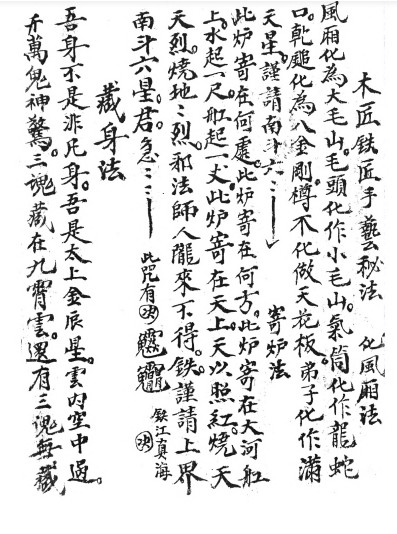 木匠鉄匠手藝秘法　化風厢法
風厢化為大毛山。毛頭化作小毛山。氣筒化作龍蛇
口。乹颸化為八金剛。樽不化做天花板。弟子化作滿
天星。謹請南斗六〻〻　寄炉法
此炉寄在何處。此炉寄在何方。此炉寄在大河舡
上。水起一尺舡起一丈。此炉寄在天上。天以照紅。燒天
天烈。燒地〻烈。邪法師人龍來不得。鉄謹請上界
南斗六星君。急〻〻　此咒有㊋　鉄江真海
藏身法
吾身不是非凡身。吾是太上金辰星。雲內空中過。
千萬鬼神驚。三魂藏在九霄雲。還有三魂無藏